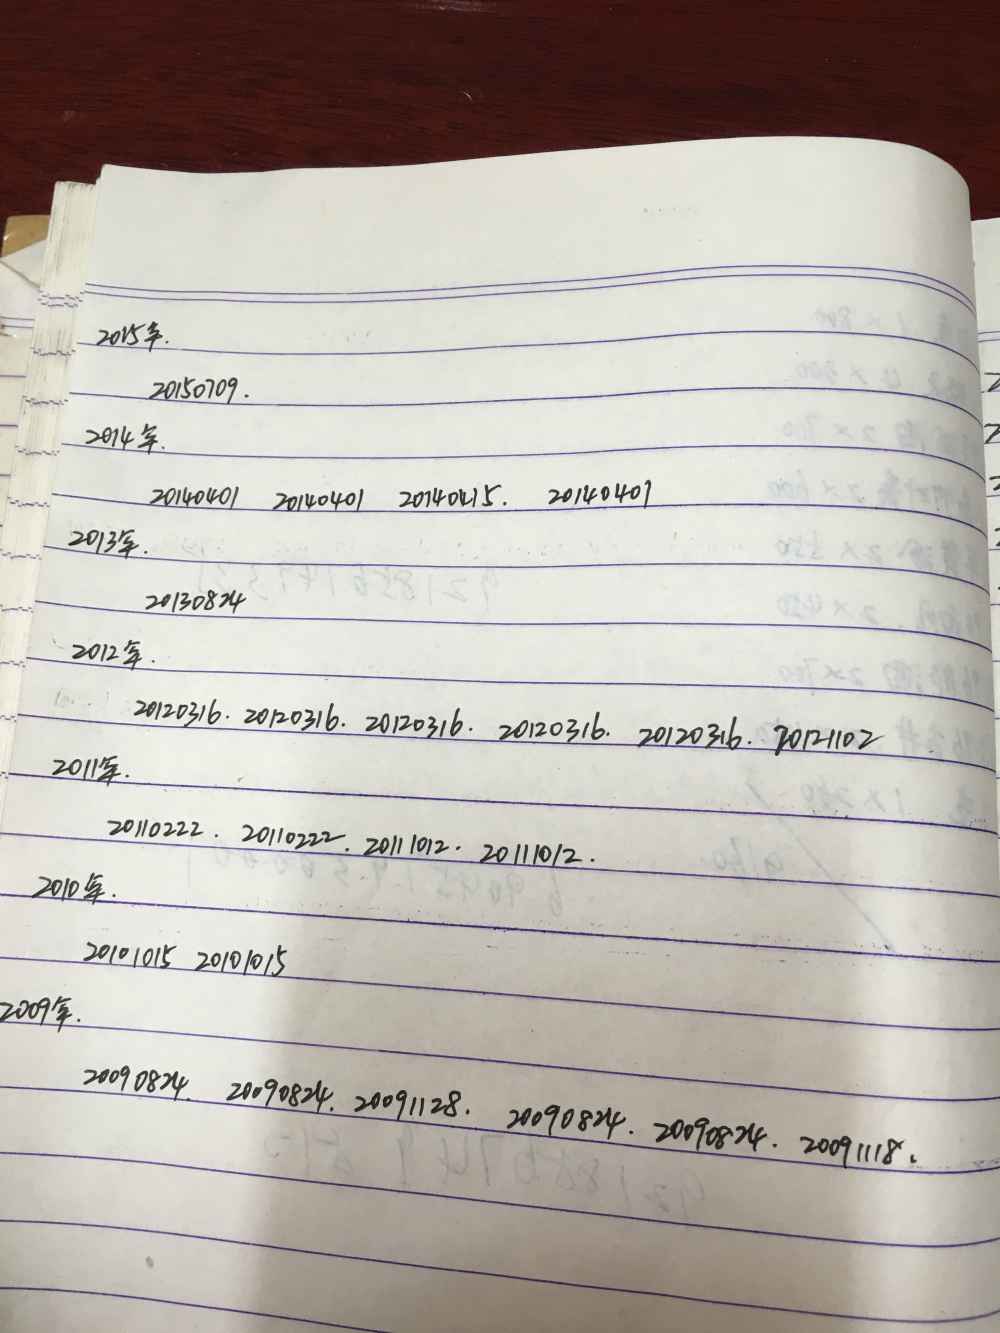 2015年.
20150709.
2014年.
20140401 20140401 20140415. 20140401
2013年.
20130824
2012年.
20120316. 20120316. 20120316. 20120316. 20120316. 20121102
2011年.
20110222. 20110222. 20111012. 20111012.
2010年.
20101015 20101015
2009年.
20090824. 20090824. 20091128. 20090824. 20090824. 20091118.